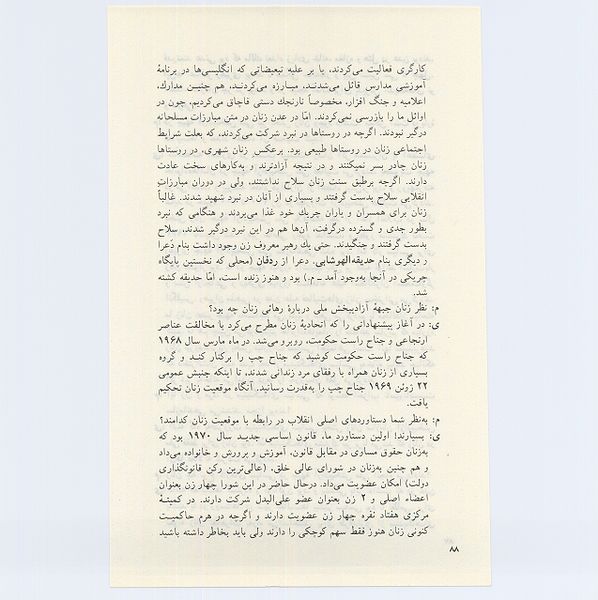 کارگری فعالیت می‌کردند، یا بر علیه تبعیضاتی که انگلیسی‌ها در برنامهٔ
آموزشی مدارس قائل می‌شدنـد، مبـارزه می‌کردنـد، هم چنیـن مدارک،
اعلامیه و جنگ افزار، مخصوصاً نارنجک دستی قاچاق می‌کردیم، چون در
اوائل ما را بازرسی نمی‌کردند. امّا در عدن زنان در متن مبارزات مسلحانه
درگیر نبودند. اگرچه در روستاها در نبرد شرکت می‌کردند، که بعلت شرایط
اجتماعی زنان در روستاها طبیعی بود. برعکس زنان شهری، در روستاها
زنان چادر بسر نمیکنند و در نتیجه آزادترند و به‌کارهای سخت عادت
دارند. اگرچه برطبق سنت زنان سلاح نداشتند، ولی در دوران مبارزات
انقلابی سلاح بدست گرفتند و بسیاری از آنان در نبرد شهید شدند. غالباً
زنان برای همسران و یاران چریک خود غذا می‌بردند و هنگامی که نبرد
بطور جدی و گسترده درگرفت، آن‌ها هم در این نبرد درگیر شدند، سلاح
بدست گرفتند و جنگیدند. حتی یک رهبر معروف زن وجود داشت بنام دعرا
و دیگری بنام حدیقه‌الهوشابی. دعرا از ردفان (محلی که نخستین پایگاه
چریکی در آنجا به‌وجود آمد ــ م.) بود و هنوز زنده است، امّا حدیقه کشته
شد.
م: نظر زنان جبههٔ آزادیبخش ملی دربارهٔ رهائی زنان چه بود؟
ی: در آغاز پیشنهاداتی را که اتحادیهٔ زنان مطرح می‌کرد با مخالفت عناصر
ارتجاعی و جناح راست حکومت، روبرو می‌شد. در ماه مارس سال ۱۹۶۸
که جناح راست حکومت کوشید که جناح چپ را برکنار کنـد و گروه
بسیاری از زنان همراه با رفقای مرد زندانی شدند، تا اینکه جنبش عمومی
۲۲ ژوئن ۱۹۶۹ جناح چپ را به‌قدرت رسانید. آنگاه موقعیت زنان تحکیم
یافت.
م: به‌نظر شما دستاوردهای اصلی انقلاب در رابطه با موقعیت زنان کدامند؟
ی: بسیارند! اولین دستاورد ما، قانون اساسی جدیـد سال ۱۹۷۰ بود که
به‌زنان حقوق مساوی در مقابل قانون، آموزش و پرورش و خانواده می‌داد
و هم چنین به‌زنان در شورای عالی خلق، (عالی‌ترین رکن قانونگذاری
دولت) امکان عضویت می‌داد. درحال حاضر در این شورا چهار زن بعنوان
اعضاء اصلی و ۲ زن بعنوان عضو علی‌البدل شرکت دارند. در کمیتـهٔ
مرکزی هفتاد نفره چهار زن عضویت دارند و اگرچه در هرم حاکمیـت
کنونی زنان هنوز فقط سهم کوچکی را دارند ولی باید بخاطر داشته باشید
۸۸